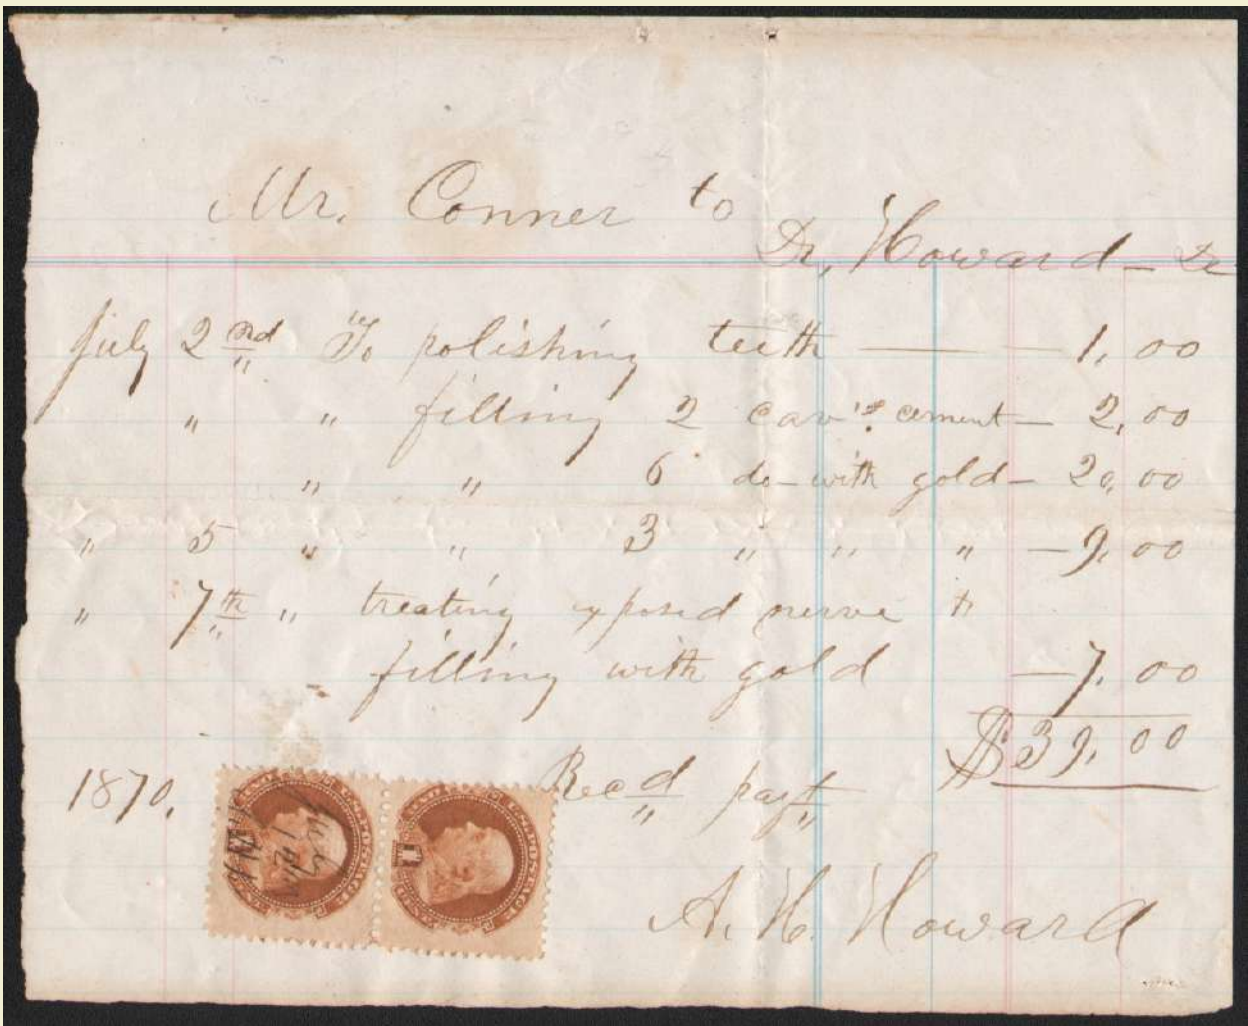 Mr. Conner to
Dr, Howard – Dr
July 2nd " To polishing teeth — 1,00
" " filling 2 cav's cement – 2,00
" " 6 do – with gold – 20,00
" 5 " " 3 " " " – 9,00
" 7th " treating exposed nerve &
filling with gold – 7,00
$39,00
1870. Rec'd payt
A. H. Howard
U.S. POSTAGE
U.S. POSTAGE